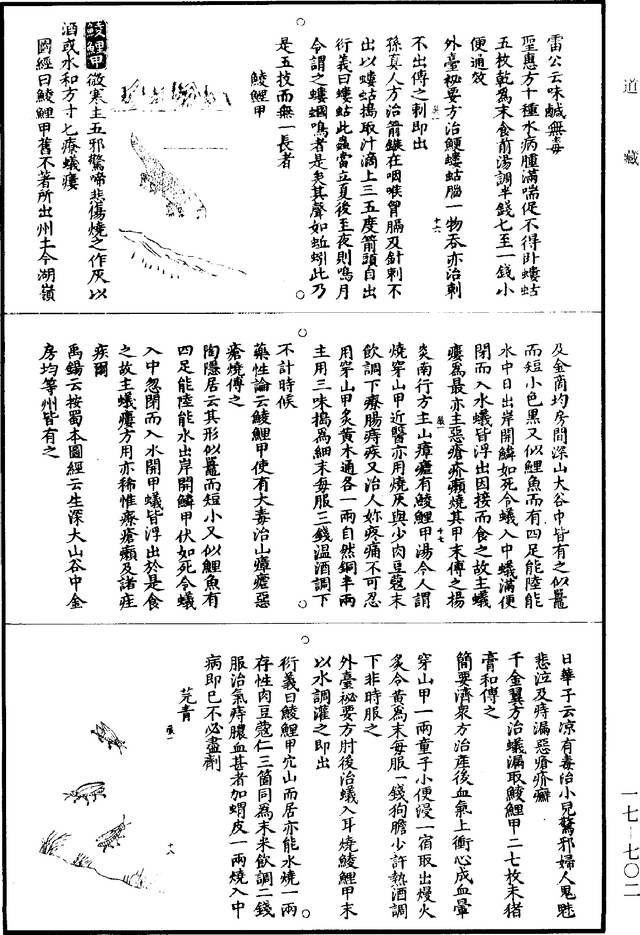 道藏
雷公云味鹹無毒
聖惠方十種水病腫滿喘促不得卧螻蛄
五枚乾爲末食前湯調半錢匕至一錢小
便通效
外臺秘要方治鯁螻蛄腦一物吞亦治刺
不出傅之刺即出
孫真人方治箭鏃在咽喉胷膈及針刺不
出以螻蛄搗取汁滴上三五度箭頭自出
衍義曰螻蛄此蟲當立夏後至夜則鳴月
令謂之螻蟈鳴者是矣其聲如蚯蚓此乃
是五技而無一長者
鯪鯉甲
鯪鯉甲微寒主五邪驚啼悲傷燒之作灰以
酒或水和方寸匕療蟻瘻
圖經曰鯪鯉甲舊不著所出州土今湖嶺
及金商均房間深山大谷中皆有之似鼉
而短小色黑又似鯉魚而有四足能陸能
水中日出岸開鱗如死令蟻入中蟻滿便
閉而入水蟻皆浮出因接而食之故主蟻
瘻爲最亦主惡瘡疥癩燒其甲末傅之楊
炎南行方主山瘴瘧有鯪鯉甲湯今人謂
燒穿山甲近醫亦用燒灰與少肉豆蔻末
飲調下療腸痔疾又治人妳疼痛不可忍
用穿山甲炙黃木通各一兩自然銅半兩
主用三味搗爲細末每服二錢溫酒調下
不計時候
藥性論云鯪鯉甲使有大毒治山瘴瘧惡
瘡燒傅之
陶隱居云其形似鼉而短小又似鯉魚有
四足能陸能水出岸開鱗甲伏如死令蟻
入中忽閉而入水開甲蟻皆浮出於是食
之故主蟻瘻方用亦稀惟療瘡癩及諸疰
疾爾
禹錫云按蜀本圖經云生深大山谷中金
房均等州皆有之
日華子云凉有毒治小兒驚邪婦人鬼魅
悲泣及痔漏惡瘡疥癬
千金翼方治蟻漏取鯪鯉甲二七枚末猪
膏和傅之
簡要濟衆方治産後血氣上衝心成血暈
穿山甲一兩童子小便浸一宿取出熳火
炙令黃爲末每服一錢狗膽少許熱酒調
下非時服之
外臺秘要方肘後治蟻入耳燒鯪鯉甲末
以水調灌之即出
衍義曰鯪鯉甲穴山而居亦能水燒一兩
存性肉豆蔻仁三箇同爲末米飲調二錢
服治氣痔膿血甚者加蝟皮一兩燒入中
病即已不必盡劑
芫青
十六
十七
十八
一七-七〇二